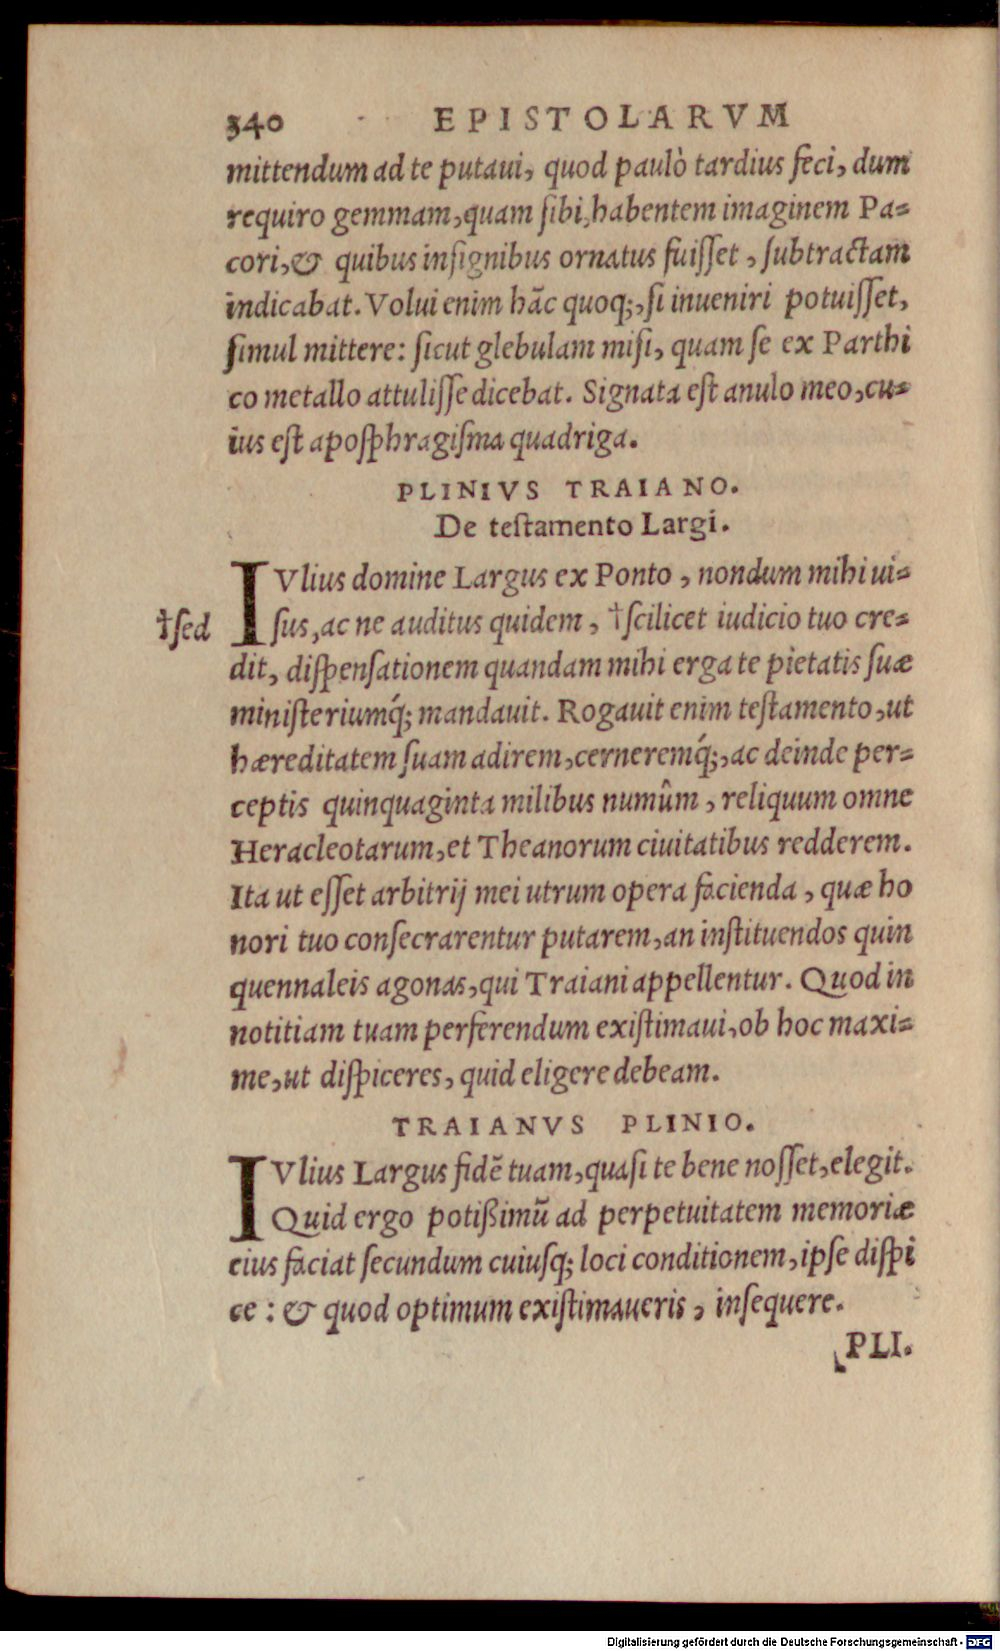 340 EPISTOLARVM
mittendum ad te putaui, quod paulò tardius feci, dum
requiro gemmam, quam sibi, habentem imaginem Pa=
cori, & quibus insignibus ornatus fuisset, subtractam
indicabat. Volui enim hãc quoq;, si inueniri potuisset,
simul mittere: sicut glebulam misi, quam se ex Parthi
co metallo attulisse dicebat. Signata est anulo meo, cu=
ius est aposphragisma quadriga.
PLINIVS TRAIANO.
De testamento Largi.
IVlius domine Largus ex Ponto, nondum mihi ui=
†sed sus, ac ne auditus quidem, †scilicet iudicio tuo cre=
dit, dispensationem quandam mihi erga te pietatis suæ
ministeriumq́; mandauit. Rogauit enim testamento, ut
hæreditatem suam adirem, cerneremq́;, ac deinde per=
ceptis quinquaginta milibus numûm, reliquum omne
Heracleotarum, et Theanorum ciuitatibus redderem.
Ita ut esset arbitrij mei utrum opera facienda, quæ ho
nori tuo consecrarentur putarem, an instituendos quin
quennaleis agonas, qui Traiani appellentur. Quod in
notitiam tuam perferendum existimaui, ob hoc maxi=
me, ut dispiceres, quid eligere debeam.
TRAIANVS PLINIO.
IVlius Largus fidẽ tuam, quasi te bene nosset, elegit.
Quid ergo potißimũ ad perpetuitatem memoriæ
eius faciat secundum cuiusq; loci conditionem, ipse dispi
ce: & quod optimum existimaueris, insequere.
PLI.
Digitalisierung gefördert durch die Deutsche Forschungsgemeinschaft - DFG